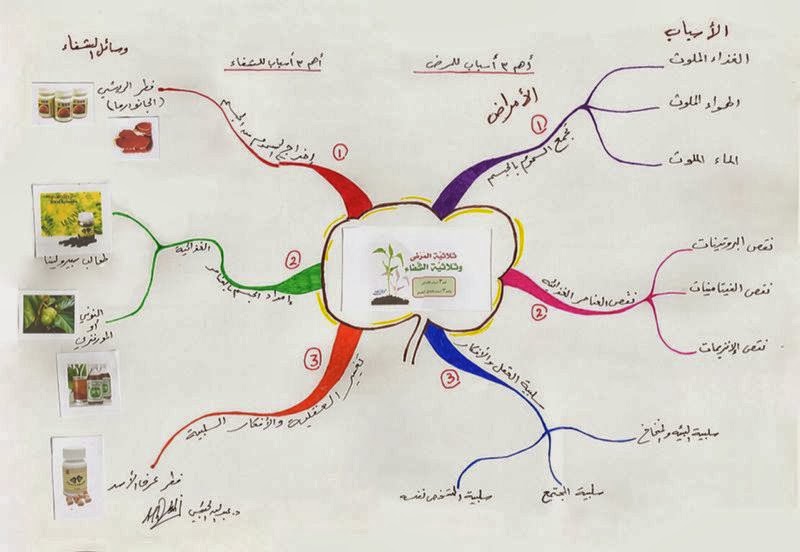 الأسباب
أهم ٣ أسباب للمرض
الأمراض
① تجمع السموم بالجسم
الغذاء الملوث
الهواء الملوث
الماء الملوث
② نقص العناصر الغذائية
نقص البروتينات
نقص الفيتامينات
نقص الإنزيمات
③ سلبية العقل والأفكار
سلبية البيئة والمناخ
سلبية المجتمع
سلبية الشخص نفسه
ثلاثية المرض
وثلاثية الشفاء
وسائل الشفاء
أهم ٣ أسباب للشفاء
① إخراج السموم من الجسم
فطر الريشي
(الجانودرما)
② وإمداد الجسم بالعناصر الغذائية
طحالب سبيرولينا
النوني
أو
المورنزي
③ تغيير العقلية والأفكار السلبية
فطر عرف الأسد